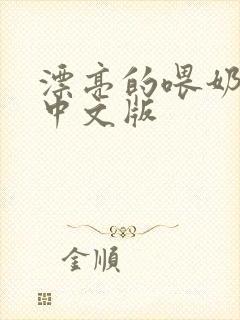 漂亮的喂奶
中文版
金順